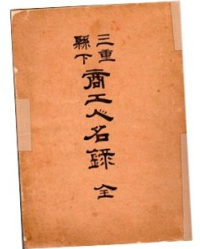 三重縣下商工人名録 全